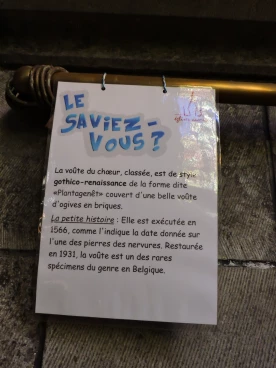 LE
SAVIEZ-
VOUS ?
La voûte du chœur, classée, est de style
gothico-renaissance de la forme dite
«Plantagenêt» couvert d'une belle voûte
d'ogives en briques.
La petite histoire : Elle est exécutée en
1566, comme l'indique la date donnée sur
l'une des pierres des nervures. Restaurée
en 1931, la voûte est un des rares
spécimens du genre en Belgique.